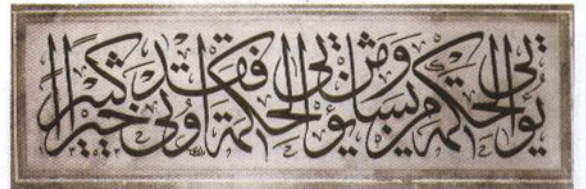 يُؤْتِى الْحِكْمَةَ مَنْ يَشَاءُ وَمَنْ يُؤْتَ الْحِكْمَةَ فَقَدْ اُوتِىَ خَيْرًا كَثِيرًا